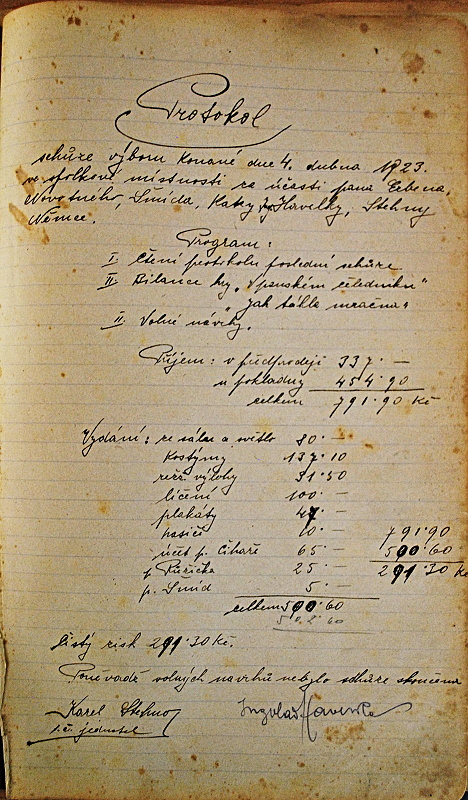 Protokol
schůze výboru konané dne 4. dubna 1923.
ve spolkové místnosti za účasti pana Čebena,
Novotného, Šmída, Katky Havelky, Stehny
Němce.
Program:
I. Čtení protokolu poslední schůze
II. Bilance hry „V panském čeledníku"
„Jak táhla mračna"
II. Volné návrhy.
Příjem: v předprodeji 337·—
u pokladny 454·90
celkem 791·90 Kč
Vydání: ze sálu a světlo 80·—
Kostýmy 137·10
režž. výlohy 31·50
líčení 100·—
plakáty 47·—
hasiči 10·— 791·90
účet p. Čihaře 65·— 500·60
p. Růžička 25·— 291·30 K
p. Šmíd 5·—
celkem 500·60
50·2·60
Čistý zisk 291·30 Kč.
Poněvadž volných návrhů nebylo schůze skončena
Karel Stehno
t. č. jednatel
Havelka